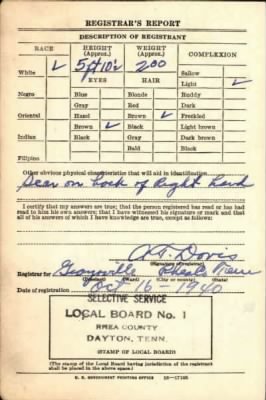 REGISTRAR'S REPORT
DESCRIPTION OF REGISTRANT
RACE HEIGHT (Approx.) WEIGHT (Approx.) COMPLEXION
White ✓ 5 ft 10½ 200 Sallow
EYES HAIR Light ✓
Negro Blue Blonde Ruddy
Gray Red Dark
Oriental Hazel Brown ✓ Freckled
Brown ✓ Black Light brown
Indian Black Gray Dark brown
Bald Black
Filipino
Other obvious physical characteristics that will aid in identification
Scar on back of Right hand
I certify that my answers are true; that the person registered has read or has had
read to him his own answers; that I have witnessed his signature or mark and that
all of his answers of which I have knowledge are true, except as follows:
Davis
(Signature of registrar)
Registrar for Graysville Rhea Tenn
(Precinct) (Ward) (City or county) (State)
Date of registration Oct 16 - 1940
SELECTIVE SERVICE
LOCAL BOARD No. 1
RHEA COUNTY
DAYTON, TENN.
(STAMP OF LOCAL BOARD)
(The stamp of the Local Board having jurisdiction of the registrant
shall be placed in the above space.)
U. S. GOVERNMENT PRINTING OFFICE 16-17105